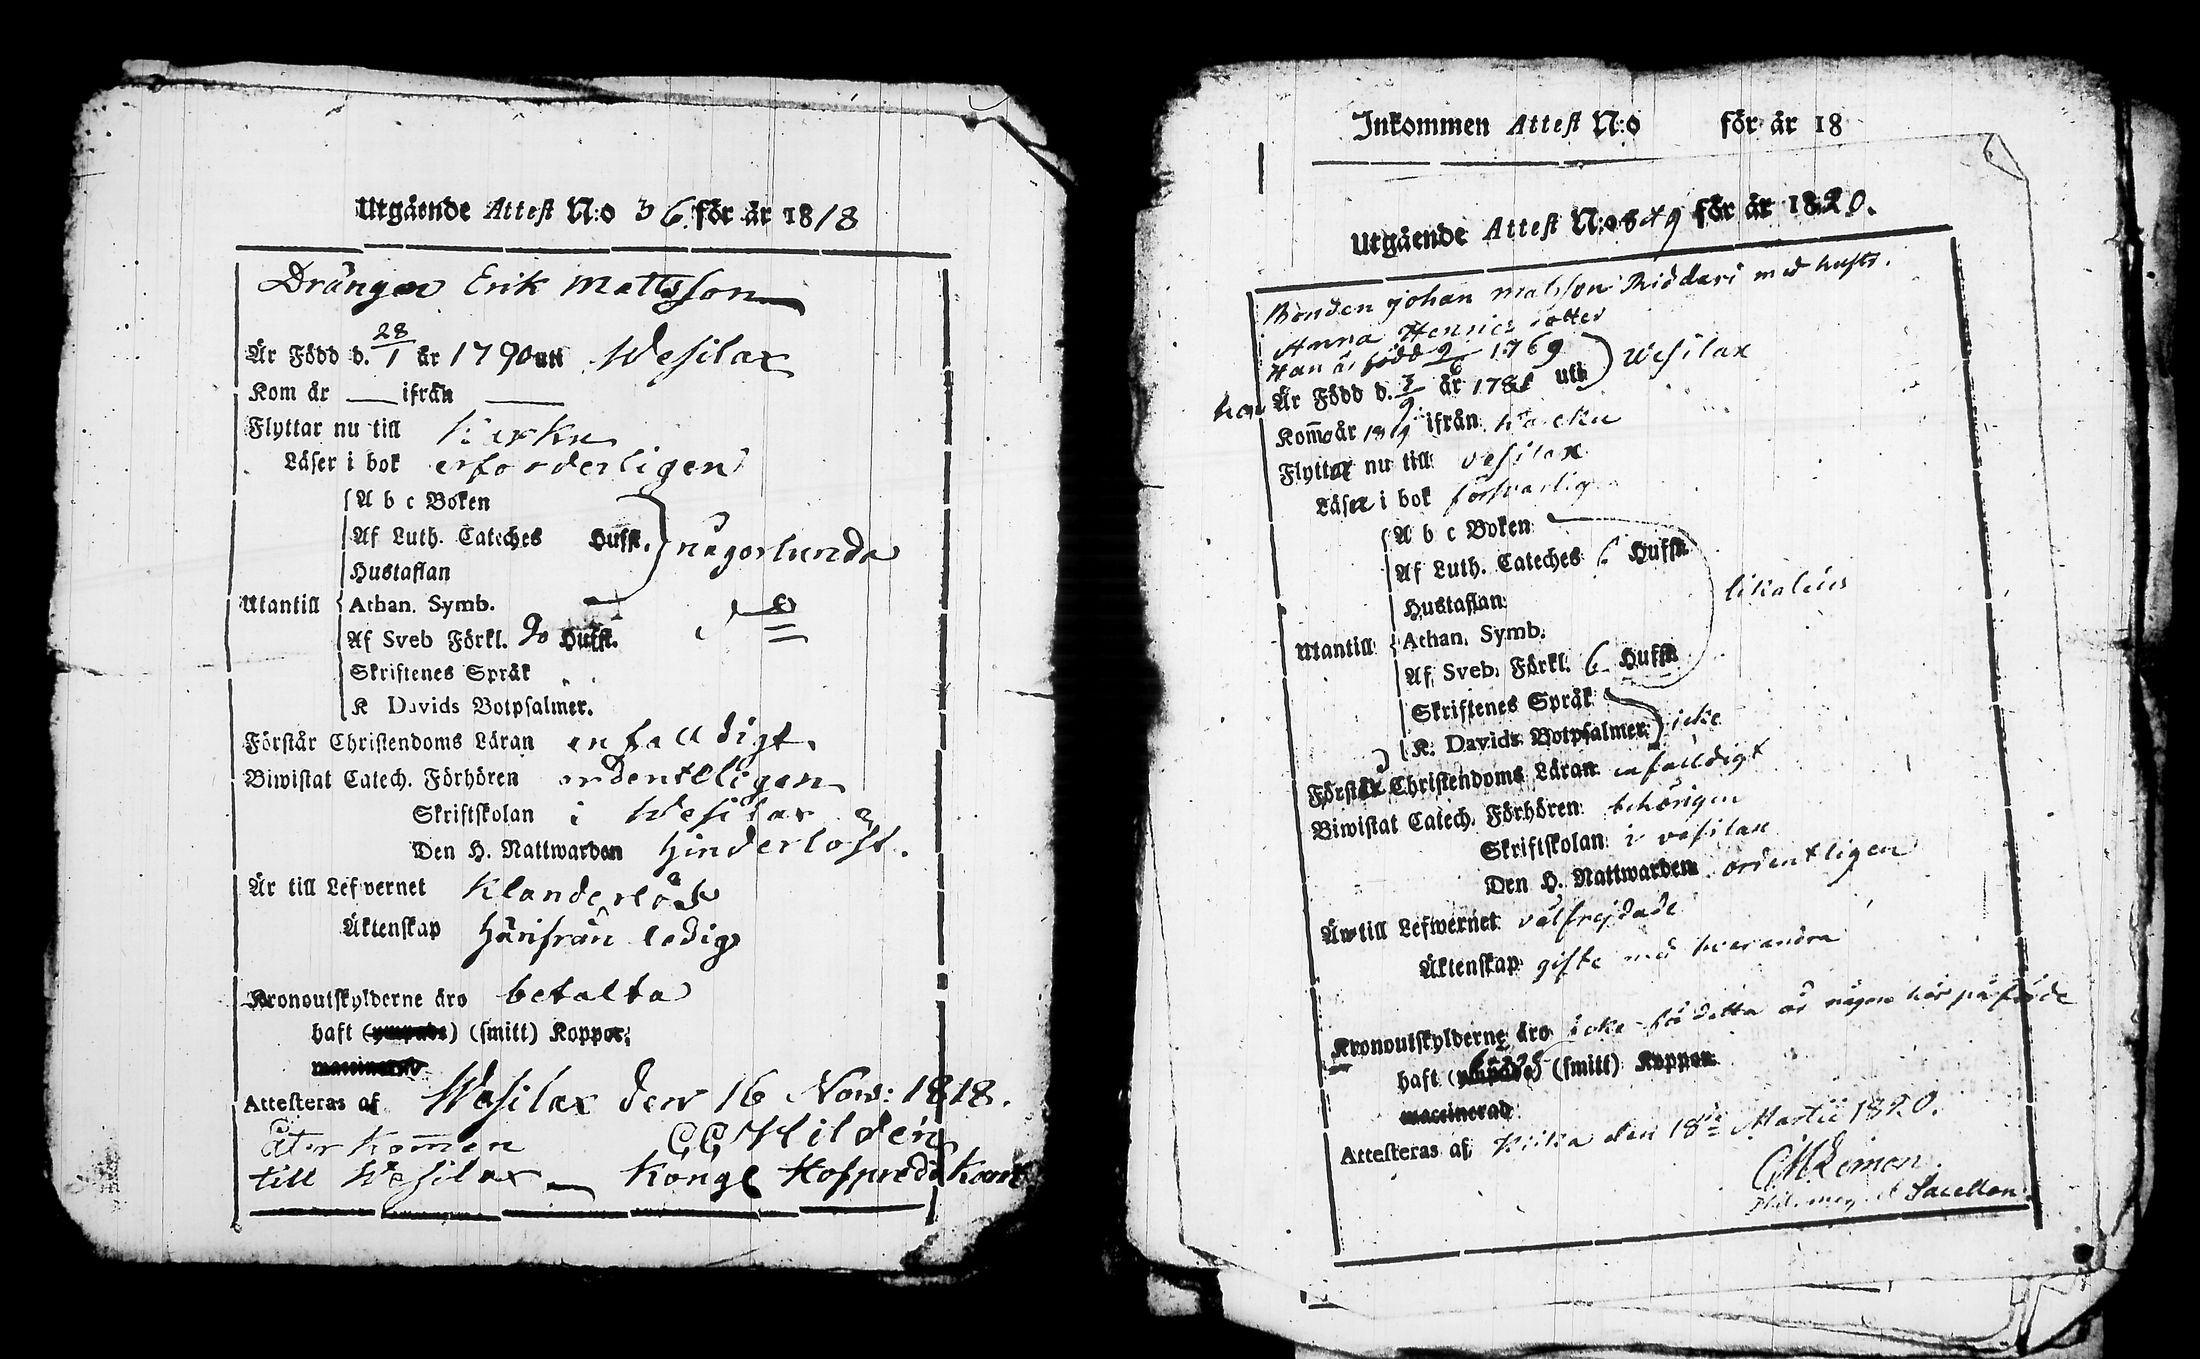 Utgående Attest N:o 36 för år 1818
Drängen Erik Mattsson
Är Född d. 28/1 år 1790 uti Wesilax
Kom år — ifrån —
Flyttar nu till Kirku
Läser i bok erforderligen
A b c Boken
Af Luth. Cateches Hufst. någorlunda
Hustaflan
Utantill Athan. Symb.
Af Sveb Förkl. Hufst.
Skriftenes Språk
K Davids Botpsalmer.
Förstår Christendoms Läran enfalldigt.
Biwistat Catech. Förhören ordentligen
Skriftskolan i Wesilax
Den H. Nattwarden hinderlöst.
Är till Lefvernet Klanderlös
Äktenskap härifrån ledig
Kronoutskylderne äro betalta
haft (smitt) Koppor;
Attesteras af Wesilax den 16 Nov: 1818.
Återkommen CGHildén
till Wesilax — Kongl Hofpred
Inkommen Attest N:o för år 18
Utgående Attest N:o 8 & 9 för år 1820.
Bonden Johan Matsson Riddari med hustr.
Anna Henricsdotter
Han är född 2/6 1769
hon Är Född d. 3/9 år 178 uti Wesilax
Kom år 1819 ifrån
Flytta nu till Vesilax
Läsa i bok försvarligen
A b c Boken
Af Luth. Cateches 6 Hufst.
Hustaflan likaledes
Utantill Athan. Symb.
Af Sveb. Förkl. 6 Hufst.
Skriftenes Språk
K. Davids Botpsalmer. icke
Förstå Christendoms Läran enfalldigt
Biwistat Catech. Förhören behörigen
Skriftskolan i Vesilax
Den H. Nattwarden ordentligen
Är till Lefwernet välfrejdade
Äktenskap gifte med hvarandra
Kronoutskylderne äro icke för detta år någon här påförde
haft (smitt) Koppor
Attesteras af den 18de Martii 1820.
Sacellan.